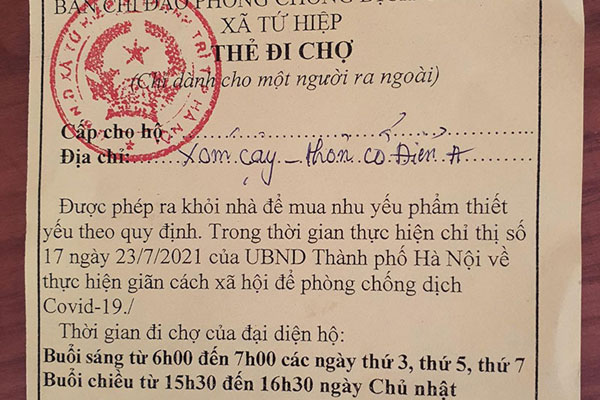 BAN CHỈ ĐẠO PHÒNG CHỐNG DỊCH
XÃ TỨ HIỆP
THẺ ĐI CHỢ
(Chỉ dành cho một người ra ngoài)
Cấp cho hộ
Địa chỉ: Xóm cạy - thôn cổ Điển A
Được phép ra khỏi nhà để mua nhu yếu phẩm thiết
yếu theo quy định. Trong thời gian thực hiện chỉ thị số
17 ngày 23/7/2021 của UBND Thành phố Hà Nội về
thực hiện giãn cách xã hội để phòng chống dịch
Covid-19./
Thời gian đi chợ của đại diện hộ:
Buổi sáng từ 6h00 đến 7h00 các ngày thứ 3, thứ 5, thứ 7
Buổi chiều từ 15h30 đến 16h30 ngày Chủ nhật